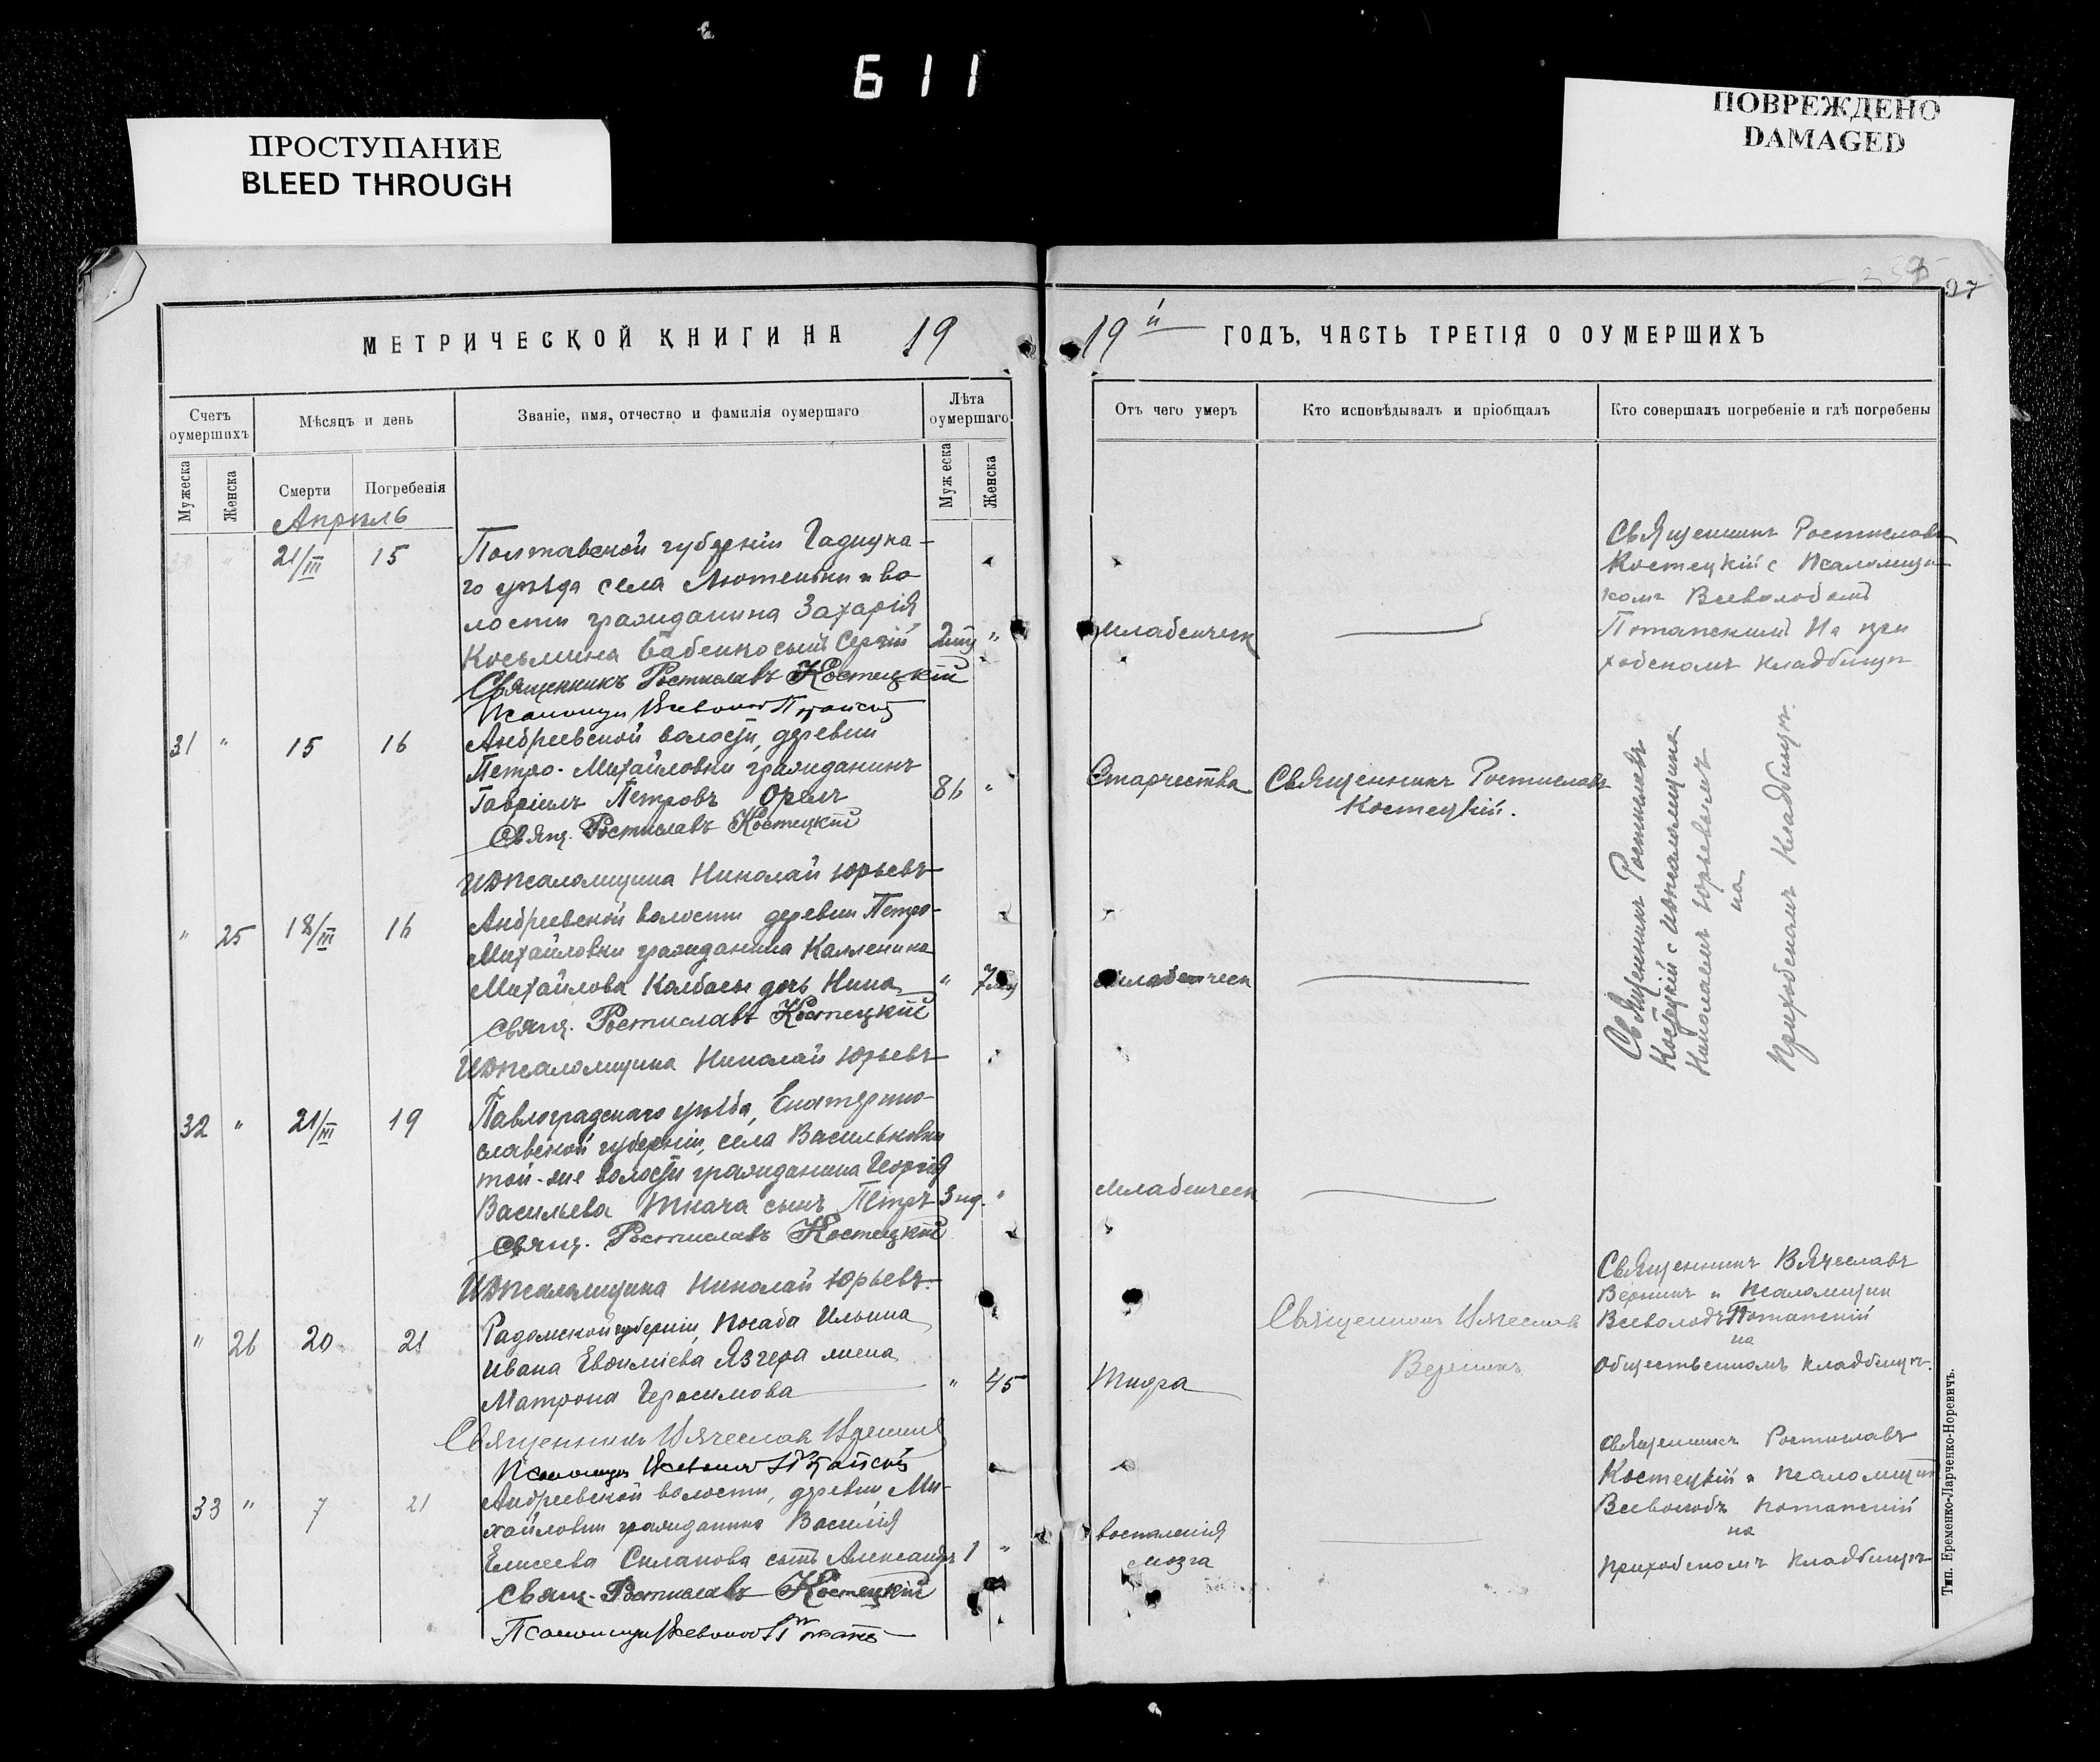 611
ПРОСТУПАНИЕ
BLEED THROUGH
ПОВРЕЖДЕНО
DAMAGED
27
МЕТРИЧЕСКОЙ КНИГИ НА 19
19й ГОДЪ, ЧАСТЬ ТРЕТІЯ О ОУМЕРШИХЪ
Счетъ оумершихъ
Мѣсяцъ и день
Званіе, имя, отчество и фамилія оумершаго
Лѣта оумершаго
Отъ чего умеръ
Кто исповѣдывалъ и пріобщалъ
Кто совершалъ погребеніе и гдѣ погребены
Мужеска
Женска
Смерти
Погребенія
Мужеска
Женска
Апрѣль
21/III 15
Полтавской губерніи Гадяцка-
го уѣзда села Лютеньки и во
лости гражданина Захарія
Косьмина Бабенко сынъ Сергій
Священникъ Ростиславъ Костецкій
младенческ
Священникъ Ростиславъ
Костецкій с Псаломщи
комъ Всеволодомъ
Потапскимъ На при
ходскомъ кладбищѣ
31 " 15 16
Андреевской волости, деревни
Петро-Михайловки гражданинъ
Гавріилъ Петровъ Орелъ 86 "
Свящ. Ростиславъ Костецкій
И д псаломщика Николай Юрьевъ
Старчества
Священникъ Ростиславъ
Костецкій.
Священникъ Ростиславъ
Костецкій с И д псаломщика
Николаемъ Юрьевымъ
на
приходскомъ кладбищѣ.
" 25 18/III 16
Андреевской волости деревни Петро-
Михайловки гражданина Каленика
Михайлова Колбасы дочь Нина " 7
Свящ. Ростиславъ Костецкій
И д псаломщика Николай Юрьевъ
младенческ
32 " 21/III 19
Павлоградскаго уѣзда, Екатерино-
славской губерніи, села Васильковки
той-же волости гражданина Георгія
Васильева Ткача сынъ Петръ 3 нд. "
Свящ. Ростиславъ Костецкій
И д псаломщика Николай Юрьевъ.
младенческ
" 26 20 21
Радомской губерніи, посада Ильина
Ивана Евфиміева Язгера жена
Матрона Герасимова " 45
Священникъ Вячеслав
Тифа
Священникъ Вячеслав
Священникъ Вячеславъ
и псаломщик
Всеволодъ Потапскій
на
общественномъ кладбищѣ.
33 " 7 21
Андреевской волости, деревни Ми-
хайловки гражданина Василія
Елисеева Силанова сынъ Александръ 1 "
Свящ. Ростиславъ Костецкій
воспаленія
мозга
Священникъ Ростиславъ
Костецкій и псаломщик
Всеволодъ Потапскій
на
приходскомъ кладбищѣ
Тип. Еременко-Ларченко-Норевичъ.